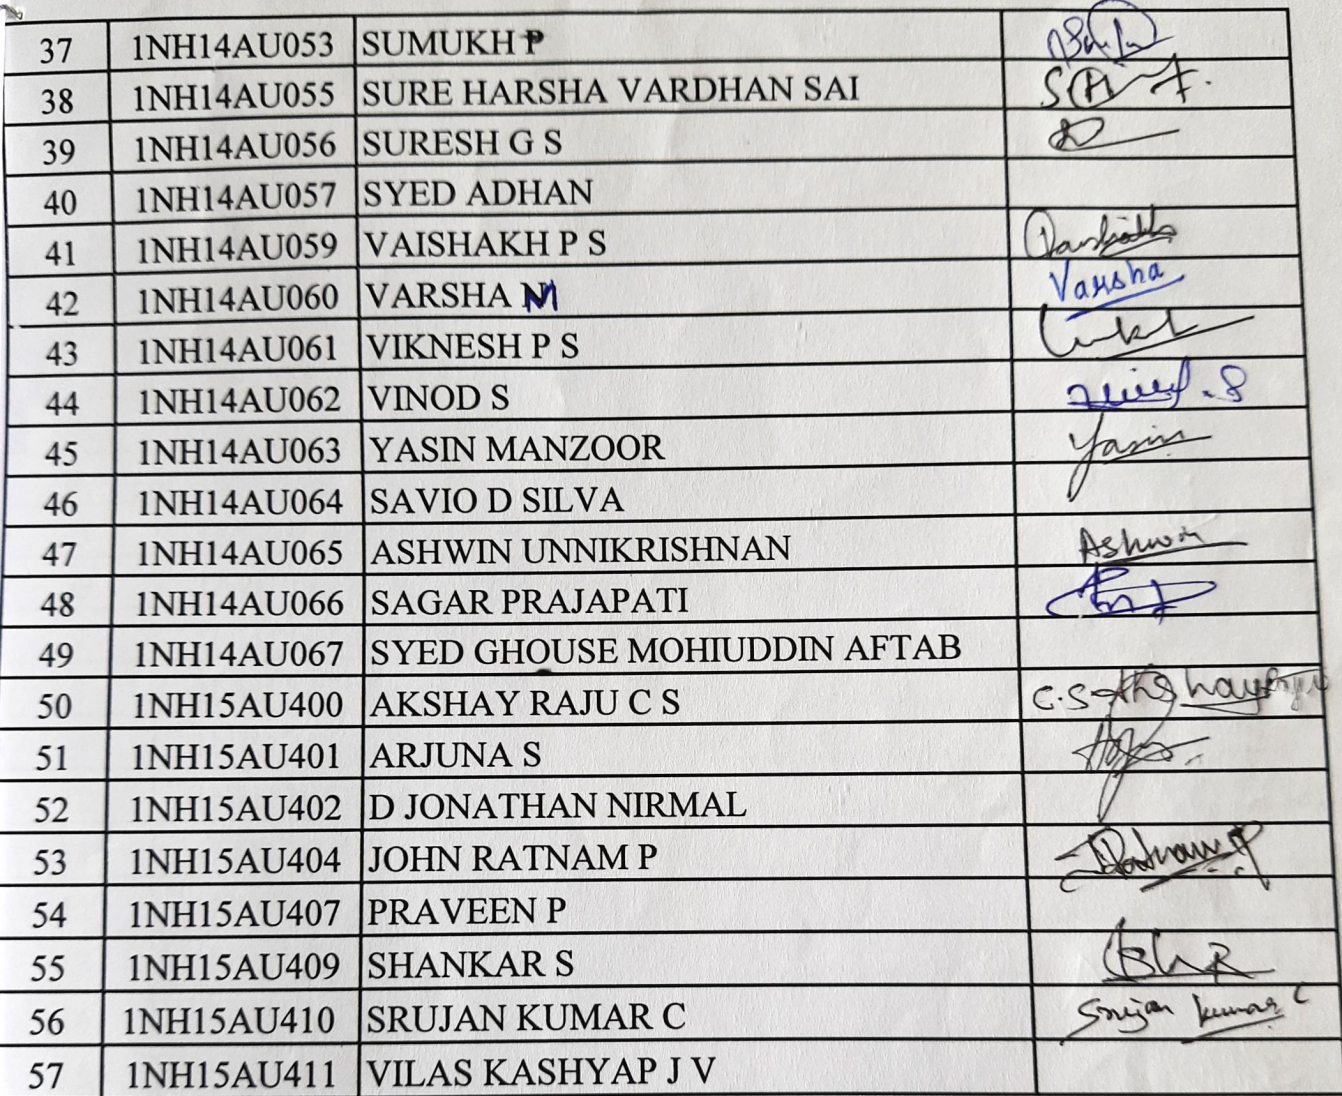 37 1NH14AU053 SUMUKH P
38 1NH14AU055 SURE HARSHA VARDHAN SAI
39 1NH14AU056 SURESH G S
40 1NH14AU057 SYED ADHAN
41 1NH14AU059 VAISHAKH P S
42 1NH14AU060 VARSHA M Varsha
43 1NH14AU061 VIKNESH P S
44 1NH14AU062 VINOD S
45 1NH14AU063 YASIN MANZOOR Yasin
46 1NH14AU064 SAVIO D SILVA
47 1NH14AU065 ASHWIN UNNIKRISHNAN Ashwin
48 1NH14AU066 SAGAR PRAJAPATI
49 1NH14AU067 SYED GHOUSE MOHIUDDIN AFTAB
50 1NH15AU400 AKSHAY RAJU C S
51 1NH15AU401 ARJUNA S
52 1NH15AU402 D JONATHAN NIRMAL
53 1NH15AU404 JOHN RATNAM P
54 1NH15AU407 PRAVEEN P
55 1NH15AU409 SHANKAR S
56 1NH15AU410 SRUJAN KUMAR C Srujan kumar C
57 1NH15AU411 VILAS KASHYAP J V